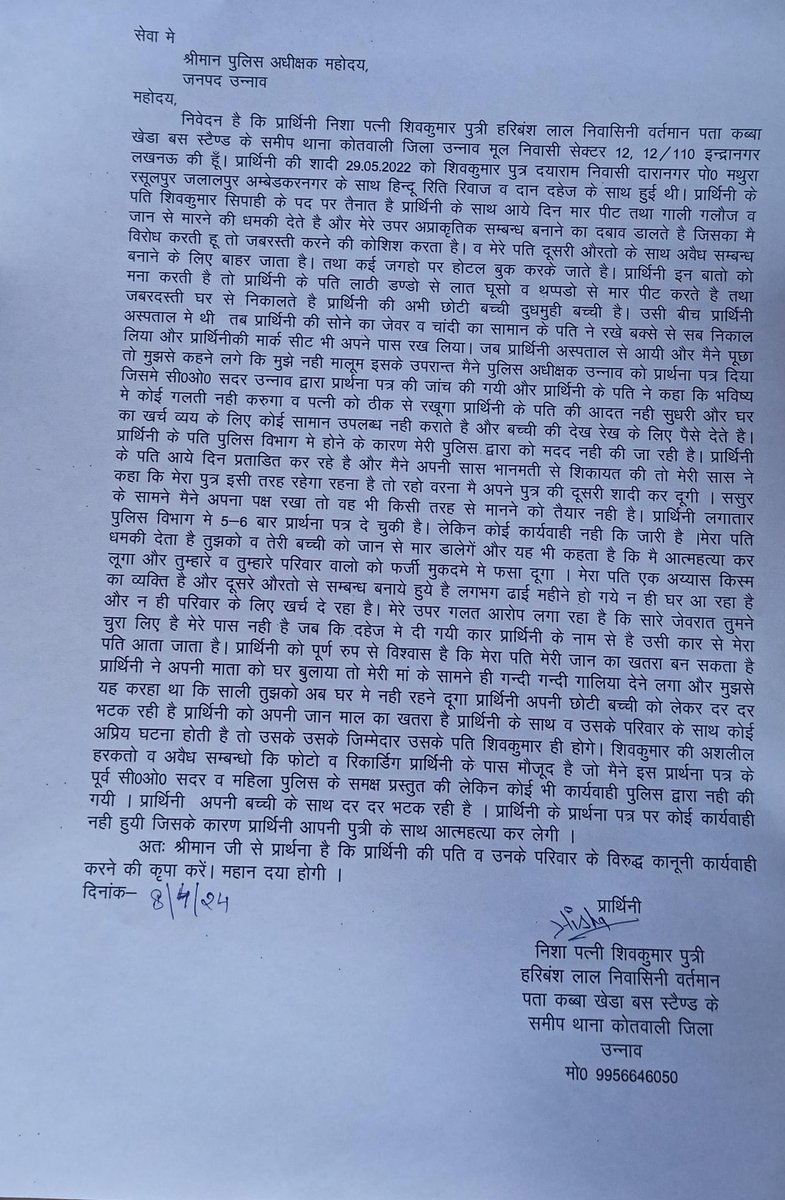 सेवा मे
श्रीमान पुलिस अधीक्षक महोदय,
जनपद उन्नाव
महोदय,
निवेदन है कि प्रार्थिनी निशा पत्नी शिवकुमार पुत्री हरिबंश लाल निवासिनी वर्तमान पता कब्बा
खेडा बस स्टैण्ड के समीप थाना कोतवाली जिला उन्नाव मूल निवासी सेक्टर 12, 12/110 इन्द्रानगर
लखनऊ की हूँ। प्रार्थिनी की शादी 29.05.2022 को शिवकुमार पुत्र दयाराम निवासी दारानगर पो0 मथुरा
रसूलपुर जलालपुर अम्बेडकरनगर के साथ हिन्दू रिति रिवाज व दान दहेज के साथ हुई थी। प्रार्थिनी के
पति शिवकुमार सिपाही के पद पर तैनात है प्रार्थिनी के साथ आये दिन मार पीट तथा गाली गलौज व
जान से मारने की धमकी देते है और मेरे उपर अप्राकृतिक सम्बन्ध बनाने का दबाव डालते है जिसका मै
विरोध करती हू तो जबरस्ती करने की कोशिश करता है। व मेरे पति दूसरी औरतो के साथ अवैध सम्बन्ध
बनाने के लिए बाहर जाता है। तथा कई जगहो पर होटल बुक करके जाते है। प्रार्थिनी इन बातो को
मना करती है तो प्रार्थिनी के पति लाठी डण्डो से लात घूसो व थप्पडो से मार पीट करते है तथा
जबरदस्ती घर से निकालते है प्रार्थिनी की अभी छोटी बच्ची दुधमुही बच्ची है। उसी बीच प्रार्थिनी
अस्पताल मे थी तब प्रार्थिनी की सोने का जेवर व चांदी का सामान के पति ने रखे बक्से से सब निकाल
लिया और प्रार्थिनीकी मार्क सीट भी अपने पास रख लिया। जब प्रार्थिनी अस्पताल से आयी और मैने पूछा
तो मुझसे कहने लगे कि मुझे नही मालूम इसके उपरान्त मैने पुलिस अधीक्षक उन्नाव को प्रार्थना पत्र दिया
जिसमे सी0ओ0 सदर उन्नाव द्वारा प्रार्थना पत्र की जांच की गयी और प्रार्थिनी के पति ने कहा कि भविष्य
मे कोई गलती नही करुगा व पत्नी को ठीक से रखूगा प्रार्थिनी के पति की आदत नही सुधरी और घर
का खर्च व्यय के लिए कोई सामान उपलब्ध नही कराते है और बच्ची की देख रेख के लिए पैसे देते है।
प्रार्थिनी के पति पुलिस विभाग मे होने के कारण मेरी पुलिस द्वारा को मदद नही की जा रही है। प्रार्थिनी
के पति आये दिन प्रताडित कर रहे है और मैने अपनी सास भानमती से शिकायत की तो मेरी सास ने
कहा कि मेरा पुत्र इसी तरह रहेगा रहना है तो रहो वरना मै अपने पुत्र की दूसरी शादी कर दूगी । ससुर
के सामने मैने अपना पक्ष रखा तो वह भी किसी तरह से मानने को तैयार नही है। प्रार्थिनी लगातार
पुलिस विभाग मे 5–6 बार प्रार्थना पत्र दे चुकी है। लेकिन कोई कार्यवाही नही कि जारी है ।मेरा पति
धमकी देता है तुझको व तेरी बच्ची को जान से मार डालेगें और यह भी कहता है कि मै आत्महत्या कर
लूगा और तुम्हारे व तुम्हारे परिवार वालो को फर्जी मुकदमे मे फसा दूगा । मेरा पति एक अय्यास किस्म
का व्यक्ति है और दूसरे औरतो से सम्बन्ध बनाये हुये है लगभग ढाई महीने हो गये न ही घर आ रहा है
और न ही परिवार के लिए खर्च दे रहा है। मेरे उपर गलत आरोप लगा रहा है कि सारे जेवरात तुमने
चुरा लिए है मेरे पास नही है जब कि दहेज मे दी गयी कार प्रार्थिनी के नाम से है उसी कार से मेरा
पति आता जाता है। प्रार्थिनी को पूर्ण रुप से विश्वास है कि मेरा पति मेरी जान का खतरा बन सकता है
प्रार्थिनी ने अपनी माता को घर बुलाया तो मेरी मां के सामने ही गन्दी गन्दी गालिया देने लगा और मुझसे
यह करहा था कि साली तुझको अब घर मे नही रहने दूगा प्रार्थिनी अपनी छोटी बच्ची को लेकर दर दर
भटक रही है प्रार्थिनी को अपनी जान माल का खतरा है प्रार्थिनी के साथ व उसके परिवार के साथ कोई
अप्रिय घटना होती है तो उसके उसके जिम्मेदार उसके पति शिवकुमार ही होगे। शिवकुमार की अशलील
हरकतो व अवैध सम्बन्धो कि फोटो व रिकार्डिग प्रार्थिनी के पास मौजूद है जो मैने इस प्रार्थना पत्र के
पूर्व सी0ओ0 सदर व महिला पुलिस के समक्ष प्रस्तुत की लेकिन कोई भी कार्यवाही पुलिस द्वारा नही की
गयी । प्रार्थिनी अपनी बच्ची के साथ दर दर भटक रही है । प्रार्थिनी के प्रार्थना पत्र पर कोई कार्यवाही
नही हुयी जिसके कारण प्रार्थिनी आपनी पुत्री के साथ आत्महत्या कर लेगी ।
अतः श्रीमान जी से प्रार्थना है कि प्रार्थिनी की पति व उनके परिवार के विरुद्ध कानूनी कार्यवाही
करने की कृपा करें। महान दया होगी ।
दिनांक– 8/4/24
प्रार्थिनी
Nisha
निशा पत्नी शिवकुमार पुत्री
हरिबंश लाल निवासिनी वर्तमान
पता कब्बा खेडा बस स्टैण्ड के
समीप थाना कोतवाली जिला
उन्नाव
मो0 9956646050